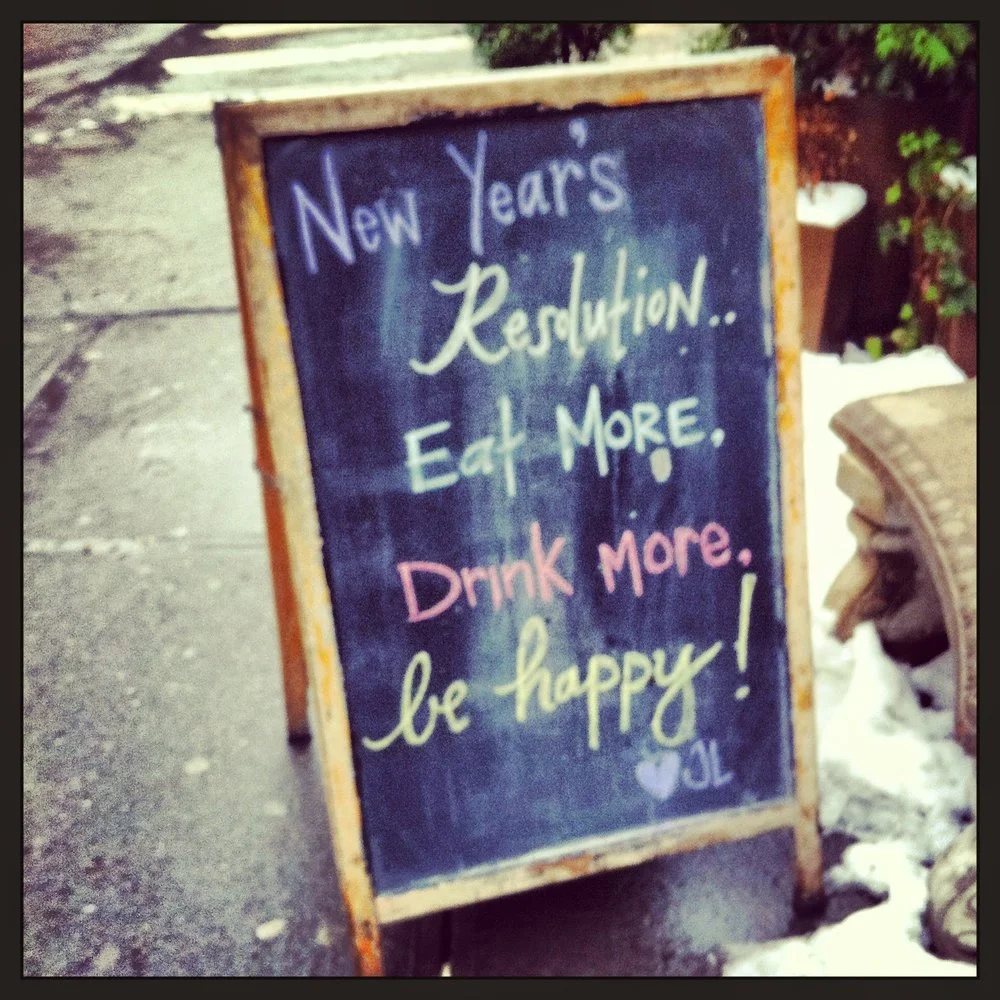 New Year's
Resolution..
Eat MORE.
Drink More.
be happy!
♥JL